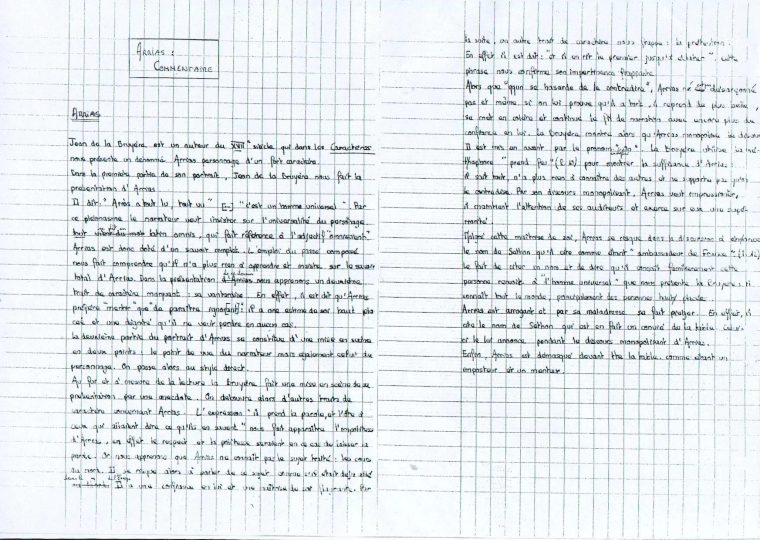 ARRIAS :
COMMENTAIRE
ARRIAS
Jean de la Bruyère est un auteur du XVII° siècle qui dans les Caractères
nous présente un dénommé Arrias personnage d'un fort caractère.
Dans la première partie de son portrait, Jean de la Bruyère nous fait la
présentation d'Arrias.
Il dit "Arrias a tout lu, tout vu" [...] "c'est un homme universel". Par
ce pléonasme le narrateur veut insister sur l'universalité du personnage
qui fait référence à l'adjectif "omniscient"
Arrias est donc doté d'un savoir complet. L'emploi du passé composé
nous fait comprendre qu'il n'a plus rien à apprendre et insiste sur le savoir
total d'Arrias. Dans la présentation d'Arrias nous apprenons un deuxième
trait de caractère marquant : sa vantardise. En effet, il est dit qu'Arrias
préfère "mentir" que de paraître ignorant : il a une estime de soi haut placée
et une dignité qu'il ne veut perdre en aucun cas.
La deuxième partie du portrait d'Arrias se constitue d'une mise en scène
en deux points : le point de vue du narrateur mais également celui du
personnage. On passe alors au style direct.
Au fur et à mesure de la lecture la Bruyère fait une mise en scène de sa
présentation par une anecdote. On découvre alors d'autres traits de
caractère concernant Arrias. L'expression "il prend la parole, et l'ôte à
ceux qui allaient dire ce qu'ils en savent" nous fait apparaître l'impolitesse
d'Arrias, en effet le respect et la politesse seraient en ce cas de laisser la
parole. Or nous apprenons que Arrias ne connaît pas le sujet traité : les cours
du nord. Il se risque alors à parler de ce sujet comme s'il était déjà allé
Il a une confiance en lui et une maîtrise de soi Par
la suite, un autre trait de caractère nous frappe : la prétention.
En effet il est dit : "et il en rit le premier jusqu'à éclater". Cette
phrase nous confirme son impertinence frappante.
Alors que "qqun se hasarde de le contredire", Arrias n'est déarçonné
pas et même si on lui prouve qu'il a tort, il reprend de plus belle,
se met en colère et continue le fil de narration avec encore plus de
confiance en lui. La Bruyère montre alors qu'Arrias monopolise le discours
Il est mis en avant par le pronom La Bruyère utilise la mé-
thaphore "prend feu" pour montrer la suffisance d'Arrias :
il sait tout, n'a plus rien à connaître des autres et ne supporte pas qu'on
le contredise. Par son discours monopolisant, Arrias veut impressionner,
il maintient l'attention de ses auditeurs et exerce sur eux une supé-
riorité.
Malgré cette maîtrise de soi, Arrias se risque dans la discussion à employer
le nom de Sethon qu'il cite comme étant "ambassadeur de France"
le fait de citer un nom et de dire qu'il connaît familièrement cette
personne renvoit à "l'homme universel" que nous présente la Bruyère : il
connaît tout le monde, principalement des personnes haut placées.
Arrias est arrogant et par sa maladresse se fait piéger. En effet, il
cite le nom de Sethon qui est en fait un convive de la table.
pendant le discours monopolisant d'Arrias.
Enfin, Arrias est démasqué devant tte la table comme étant un
imposteur et un menteur.